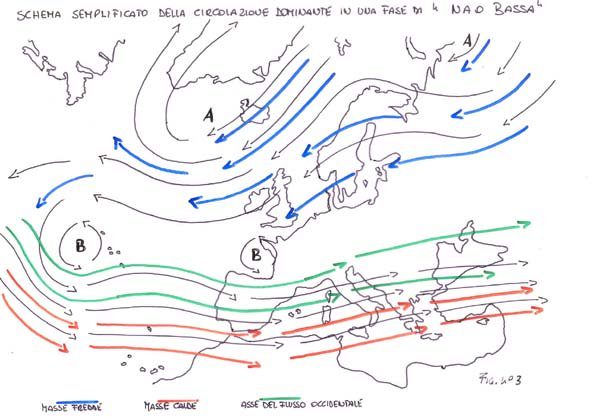 SCHEMA SEMPLIFICATO DELLA CIRCOLAZIONE DOMINANTE IN UNA FASE DI "NAO BASSA"
A
A
B
B
Fig. 403
MASSE FREDDE
MASSE CALDE
ASSE DEL FLUSSO OCCIDENTALE